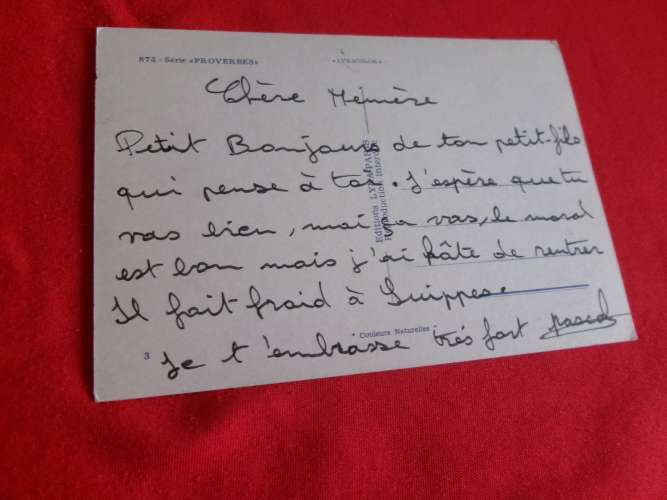 873 - Série «PROVERBES»
«LYNACOLOR»
Chère Mémère
Petit Bonjour de ton petit-fils
qui pense à toi. J'espère que tu
vas bien, moi ça vas, le moral
est bon mais j'ai hâte de rentrer
Il fait froid à Suippes
Je t'embrasse très fort Pascal
Editions LYNA-PARIS
Reproduction interdite
* Couleurs Naturelles
3